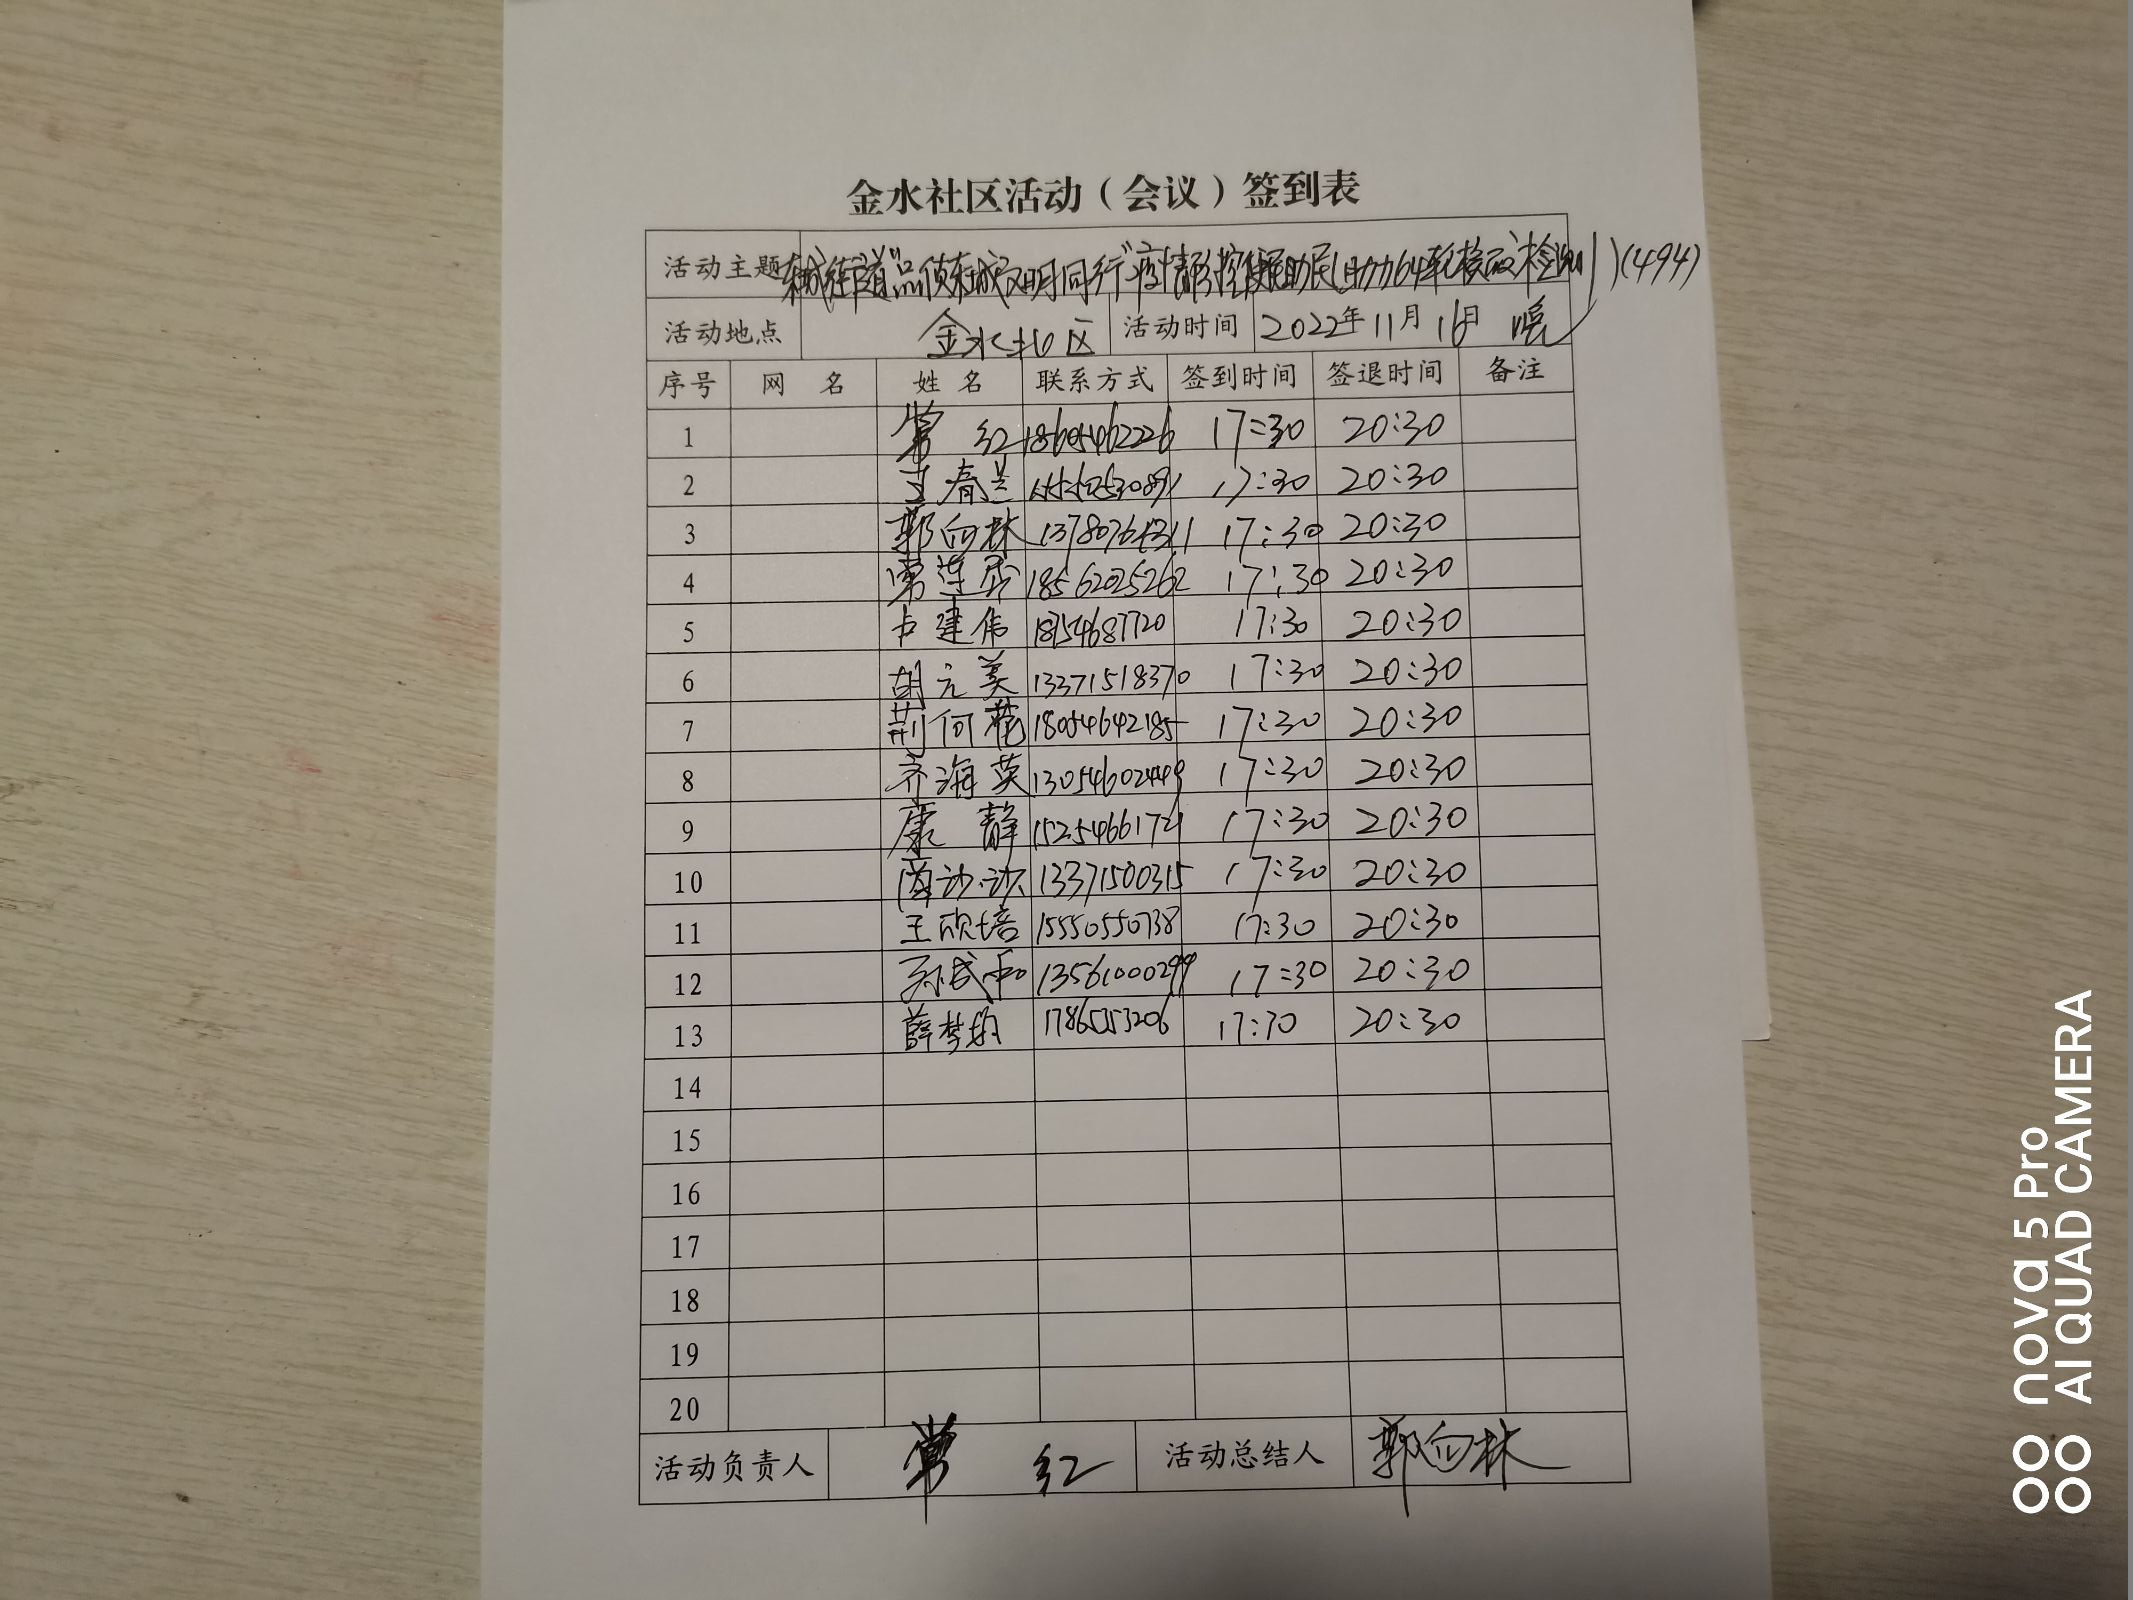 金水社区活动（会议）签到表
活动主题 东城街道"品质东城文明同行"疫情防控便民助民(助力64轮核酸检测)(494)
活动地点 金水社区 活动时间 2022年11月16日 晚
序号 网 名 姓 名 联系方式 签到时间 签退时间 备注
1 常 红 18605462226 17:30 20:30
2 王春兰 17:30 20:30
3 郭向林 17:30 20:30
4 18562025262 17:30 20:30
5 卢建伟 18154687720 17:30 20:30
6 胡元美 13371518370 17:30 20:30
7 荆何花 18054642185 17:30 20:30
8 齐海英 13054602449 17:30 20:30
9 康 静 15254661721 17:30 20:30
10 13371500315 17:30 20:30
11 王欣培 15550550738 17:30 20:30
12 13561000299 17:30 20:30
13 17865353206 17:30 20:30
14
15
16
17
18
19
20
活动负责人 常 红 活动总结人 郭向林
nova 5 Pro
AI QUAD CAMERA